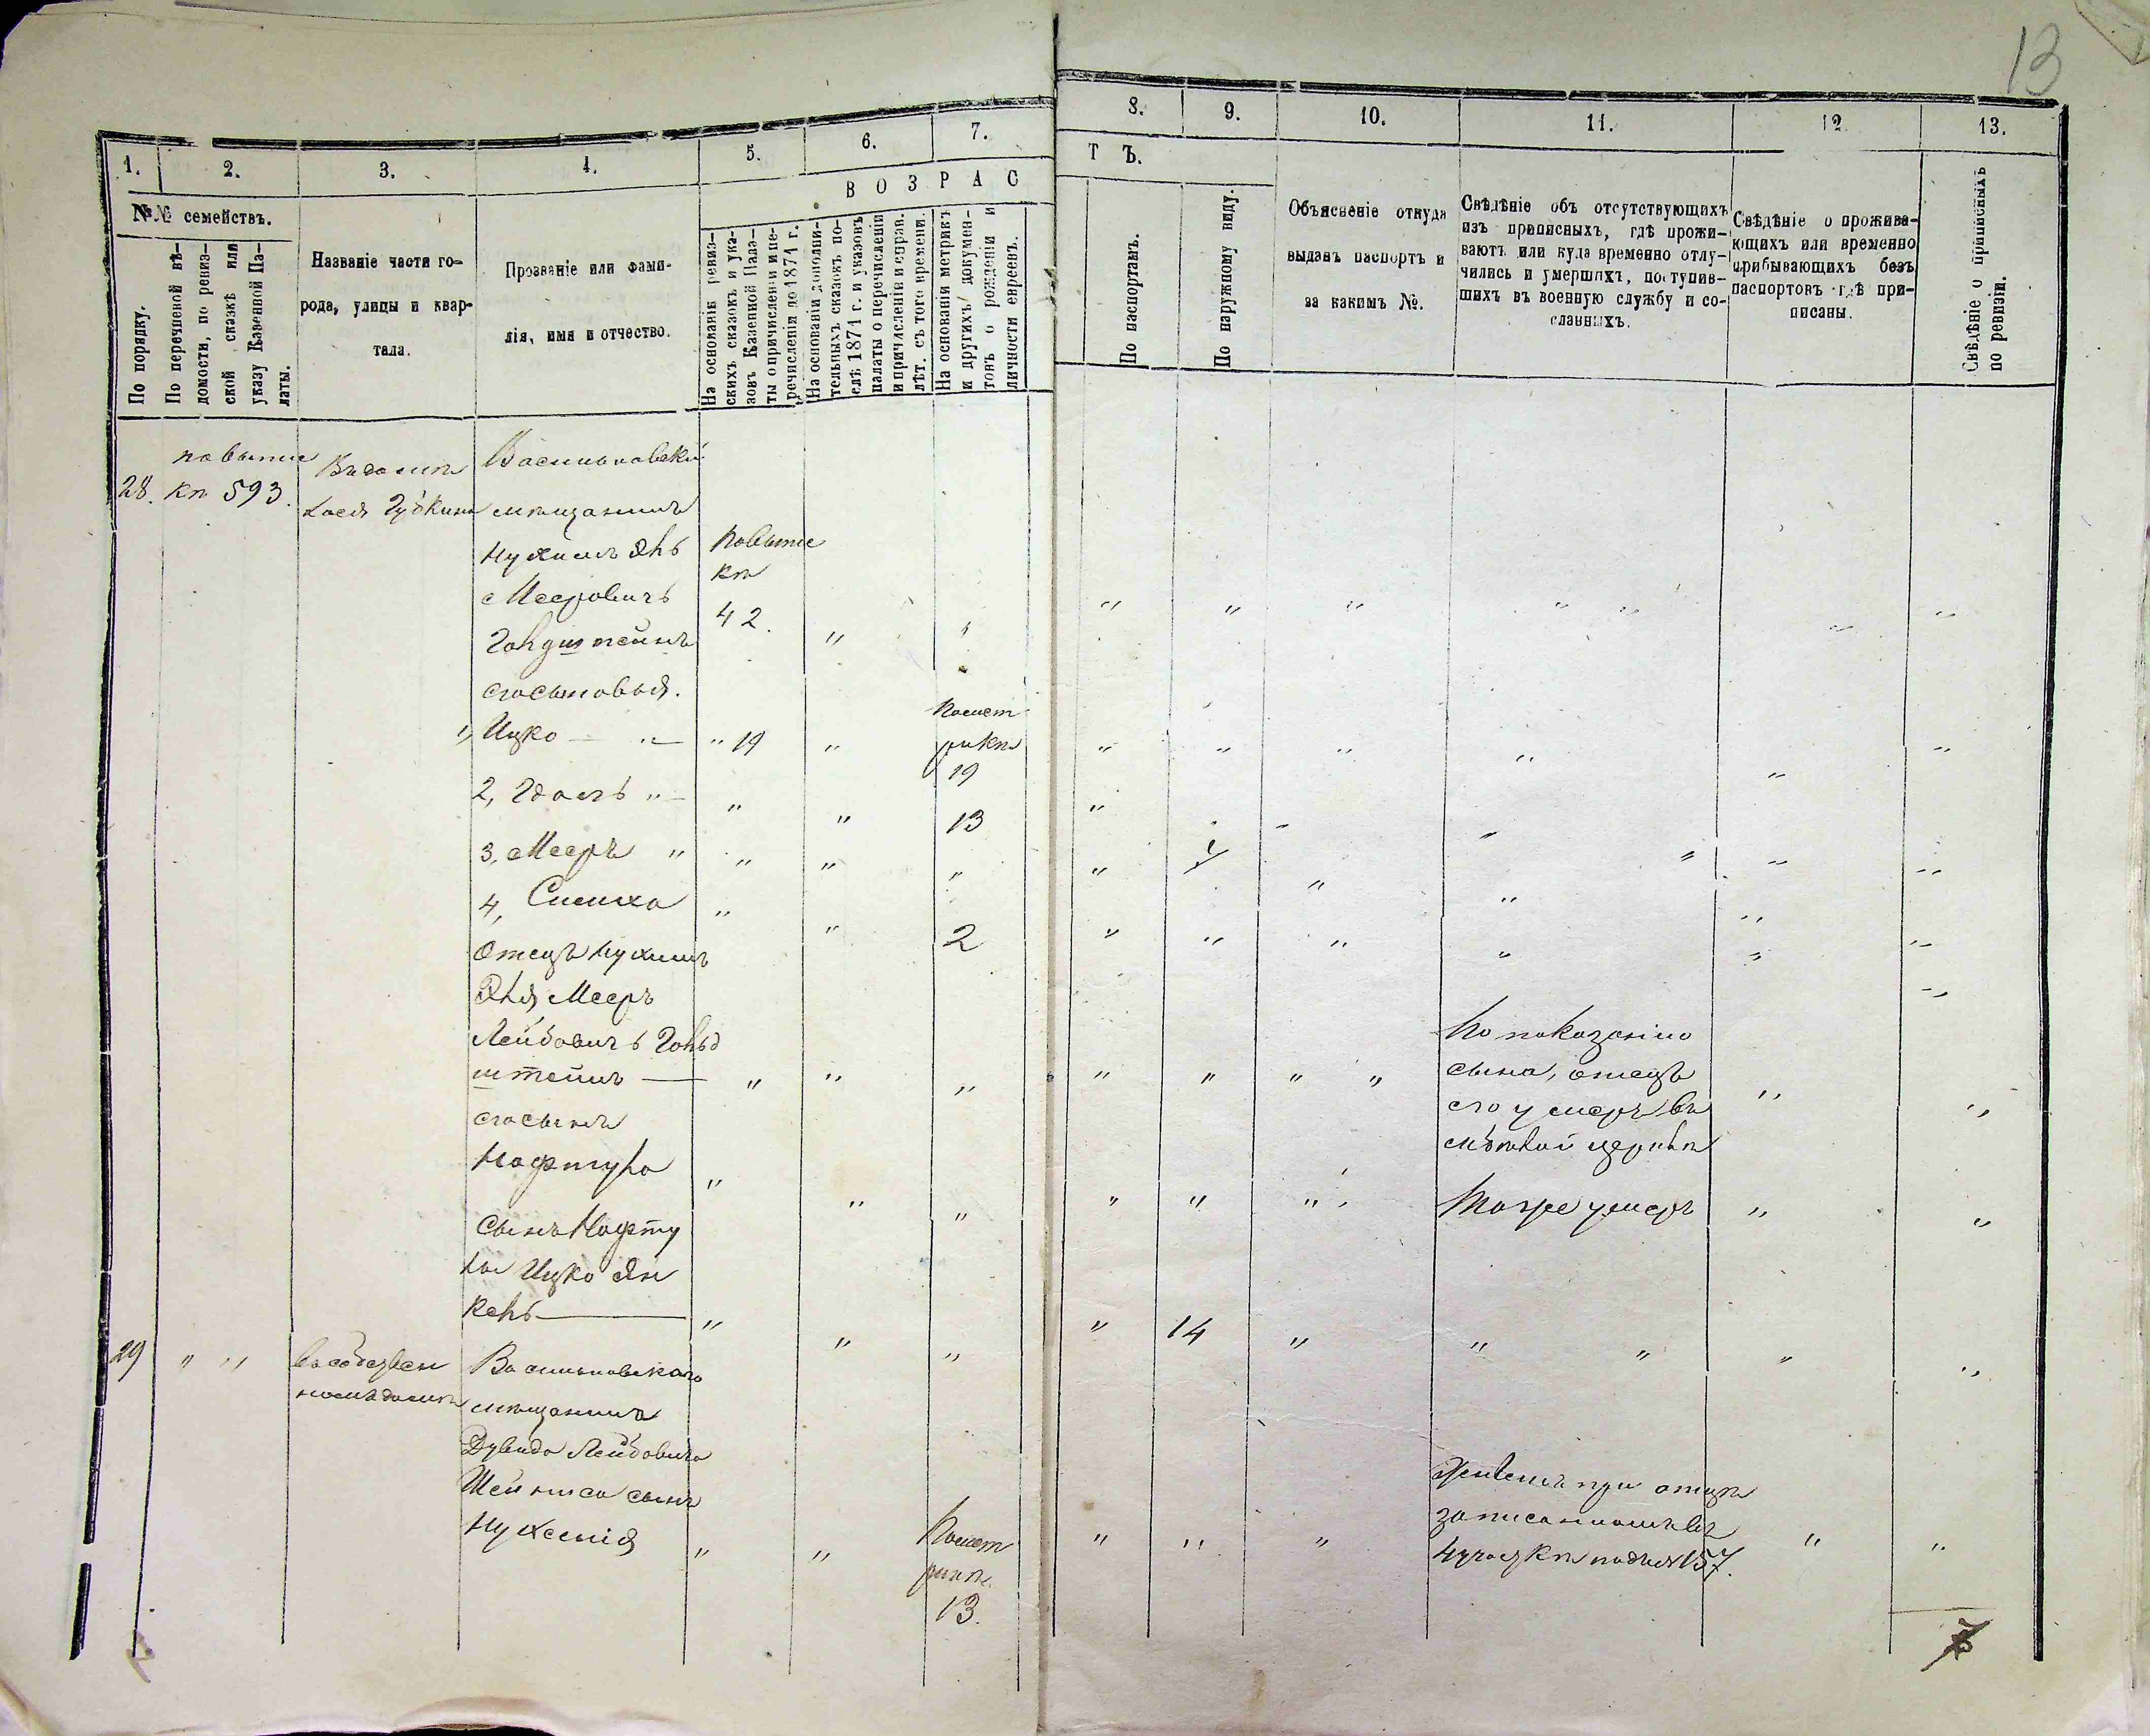 13
1.
2.
3.
4.
5.
6.
7.
8.
9.
10.
11.
12.
13.
ВОЗРАС
ТЪ.
№№ семействъ.
По порядку.
По перечневой вѣ-
домости, по ревиз-
ской сказкѣ или
указу Казенной Па-
латы.
Названіе части го-
рода, улицы и квар-
тала.
Прозваніе или фами-
лія, имя и отчество.
На основаніи ревиз-
скихъ сказокъ и ука-
зовъ Казенной Пала-
ты о причисленіи и пе-
речисленіи до 1874 г.
На основаніи дополни-
тельныхъ сказокъ по-
слѣ 1874 г. и указовъ
палаты о перечисленіи
и причисленіи и справ.
лѣт. съ того времени.
На основаніи метрикъ
и другихъ докумен-
товъ о рожденіи и
личности евреевъ.
По паспортамъ.
По наружному виду.
Объясненіе откуда
выданъ паспортъ и
за какимъ №.
Свѣдѣніе объ отсутствующихъ
изъ приписныхъ, гдѣ прожи-
ваютъ или куда временно отлу-
чились и умершихъ, поступив-
шихъ въ военную службу и со-
сланныхъ.
Свѣдѣніе о прожива-
ющихъ или временно
прибывающихъ безъ
паспортовъ гдѣ при-
писаны.
Свѣдѣніе о приписныхъ
по ревизіи.
28.
593.
Въ домѣ
Васильковскій
мѣщанинъ
Нухимъ
Мееровичъ
42.
Гольдштейнъ
его сыновья.
1, Ицко
" 19
По мет
рикѣ
19
2,
13
3, Мееръ "
4, Симха
2
Отецъ Нухимъ
Мееръ
Лейбовичъ Гольд
штейнъ
По показанію
сына, отецъ
его умеръ въ
его сынъ
Нафтула
Тоже умеръ
Сынъ Нафту
лы Ицко Ян
кель
14
29
въ собствен
номъ домѣ
Васильковскаго
мѣщанина
Дувида Лейбовича
сынъ
По мет
рикѣ
13.
Живетъ при отцѣ
записанномъ въ
157.